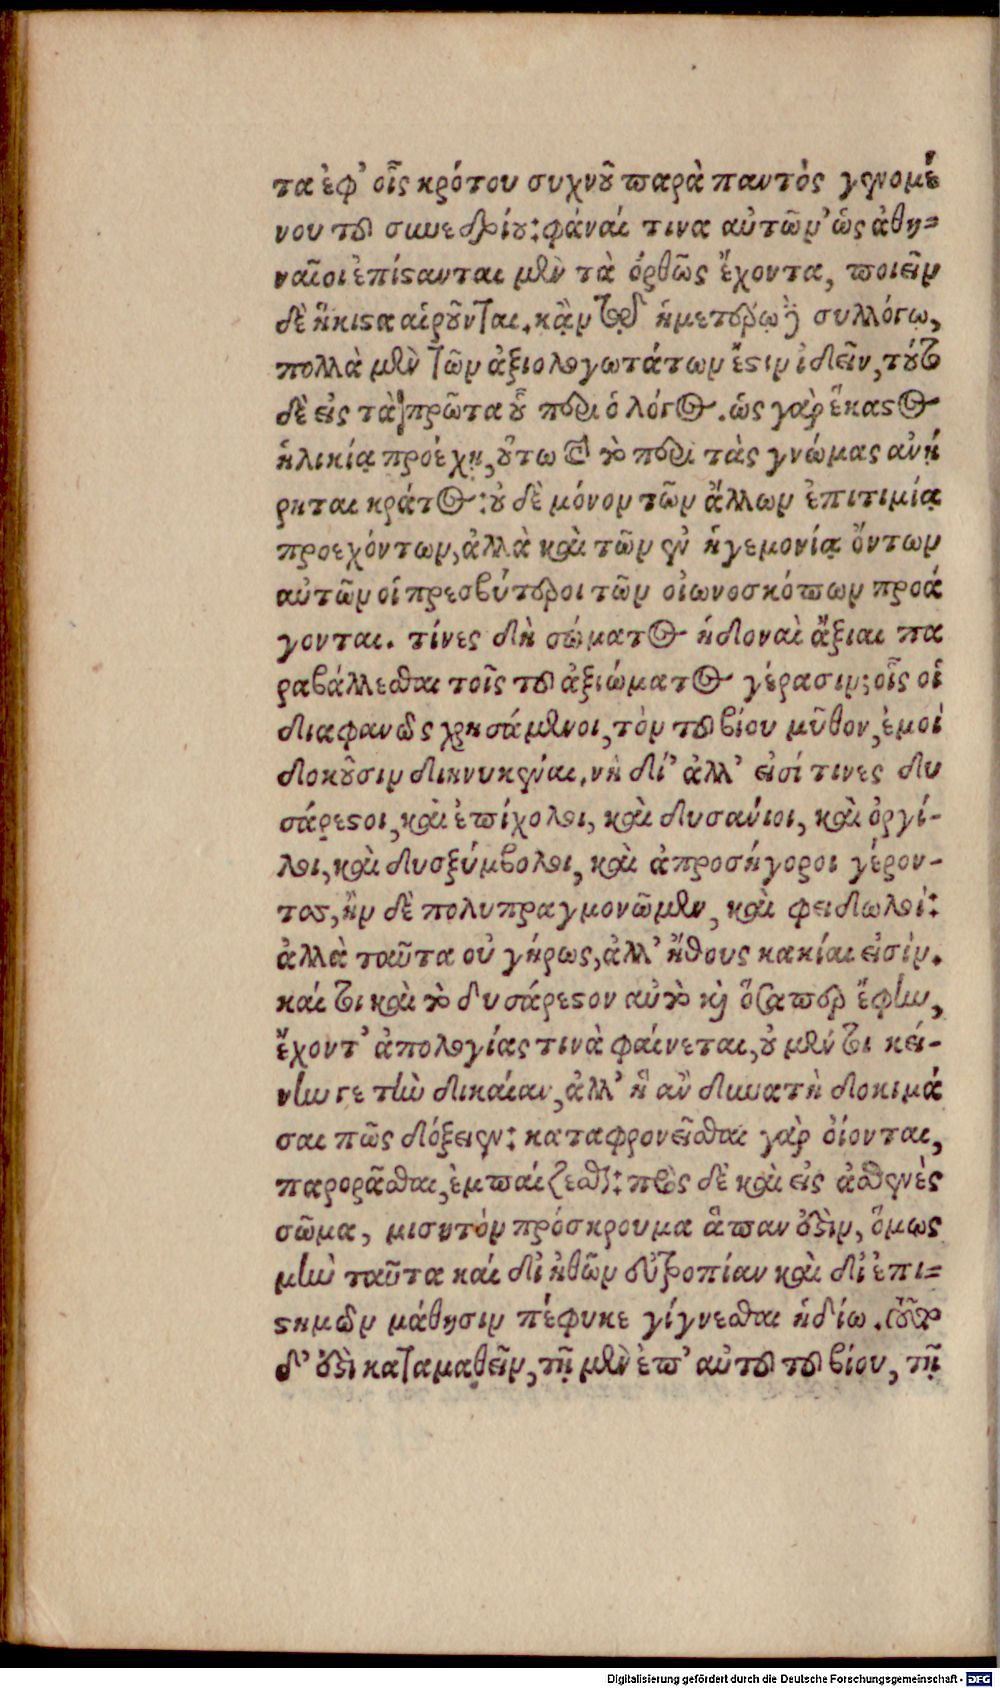 τα ἐφ' οἷς κρότου συχνοῦ παρὰ παντὸς γινομέ
νου τοῦ συνεδρίου: φάναί τινα αὐτῶν ὡς ἀθη=
ναῖοι ἐπίστανται μὲν τὰ ὀρθῶς ἔχοντα, ποιεῖν
δὲ ἥκιστα αἱροῦνται. κἂν τῷδε ἡμετέρῳ δὴ συλλόγῳ,
πολλὰ μὲν τῶν ἀξιολογωτάτων ἔστιν ἰδεῖν, τοῦτο
δὲ εἰς τὰ πρῶτα οὗ περὶ ὁ λόγος. ὡς γὰρ ἕκαστος
ἡλικίᾳ προέχῃ, οὕτω καὶ τὸ περὶ τὰς γνώμας ἀνή
ρηται κράτος: οὐ δὲ μόνον τῶν ἄλλων ἐπιτιμίᾳ
προεχόντων, ἀλλὰ καὶ τῶν ἐν ἡγεμονίᾳ ὄντων
αὐτῶν οἱ πρεσβύτεροι τῶν οἰωνοσκόπων προά
γονται. τίνες δὴ σώματος ἡδοναὶ ἄξιαι πα
ραβάλλεσθαι τοῖς τοῦ ἀξιώματος γέρασιν; οἷς οἱ
διαφανῶς χρησάμενοι, τὸν τοῦ βίου μῦθον, ἐμοί
δοκοῦσιν διηνυκέναι. νὴ δί' ἀλλ' εἰσί τινες δυ
σάρεστοι, καὶ ἐπίχολοι, καὶ δυσανίοι, καὶ ὀργί-
λοι, καὶ δυσξύμβολοι, καὶ ἀπροσήγοροι γέρον-
τες, ἢν δὲ πολυπραγμονῶμεν, καὶ φειδωλοί:
ἀλλὰ ταῦτα οὐ γήρως, ἀλλ' ἤθους κακίαι εἰσίν.
καί τοι καὶ τὸ δυσάρεστον αὐτὸ καὶ ὅσαπερ ἔφην,
ἔχοντ' ἀπολογίας τινὰ φαίνεται, οὐ μέν τοι κεί-
νην γε τὴν δικαίαν, ἀλλ' ἣ ἂν δυνατὴ δοκιμά
σαι πῶς δόξειεν: καταφρονεῖσθαι γὰρ οἴονται,
παρορᾶσθαι, ἐμπαίζεσθαι: πρὸς δὲ καὶ εἰς ἀσθενὲς
σῶμα, μισητὸν πρόσκρουμα ἅπαν ἐστίν, ὅμως
μὴν ταῦτα καί δι ἠθῶν εὐτροπίαν καὶ δι ἐπι=
στημῶν μάθησιν πέφυκε γίγνεσθαι ἡδίω.
δ' ἐστὶ καταμαθεῖν, τῇ μὲν ἐπ' αὐτοῦ τοῦ βίου, τῇ
Digitalisierung gefördert durch die Deutsche Forschungsgemeinschaft - DFG